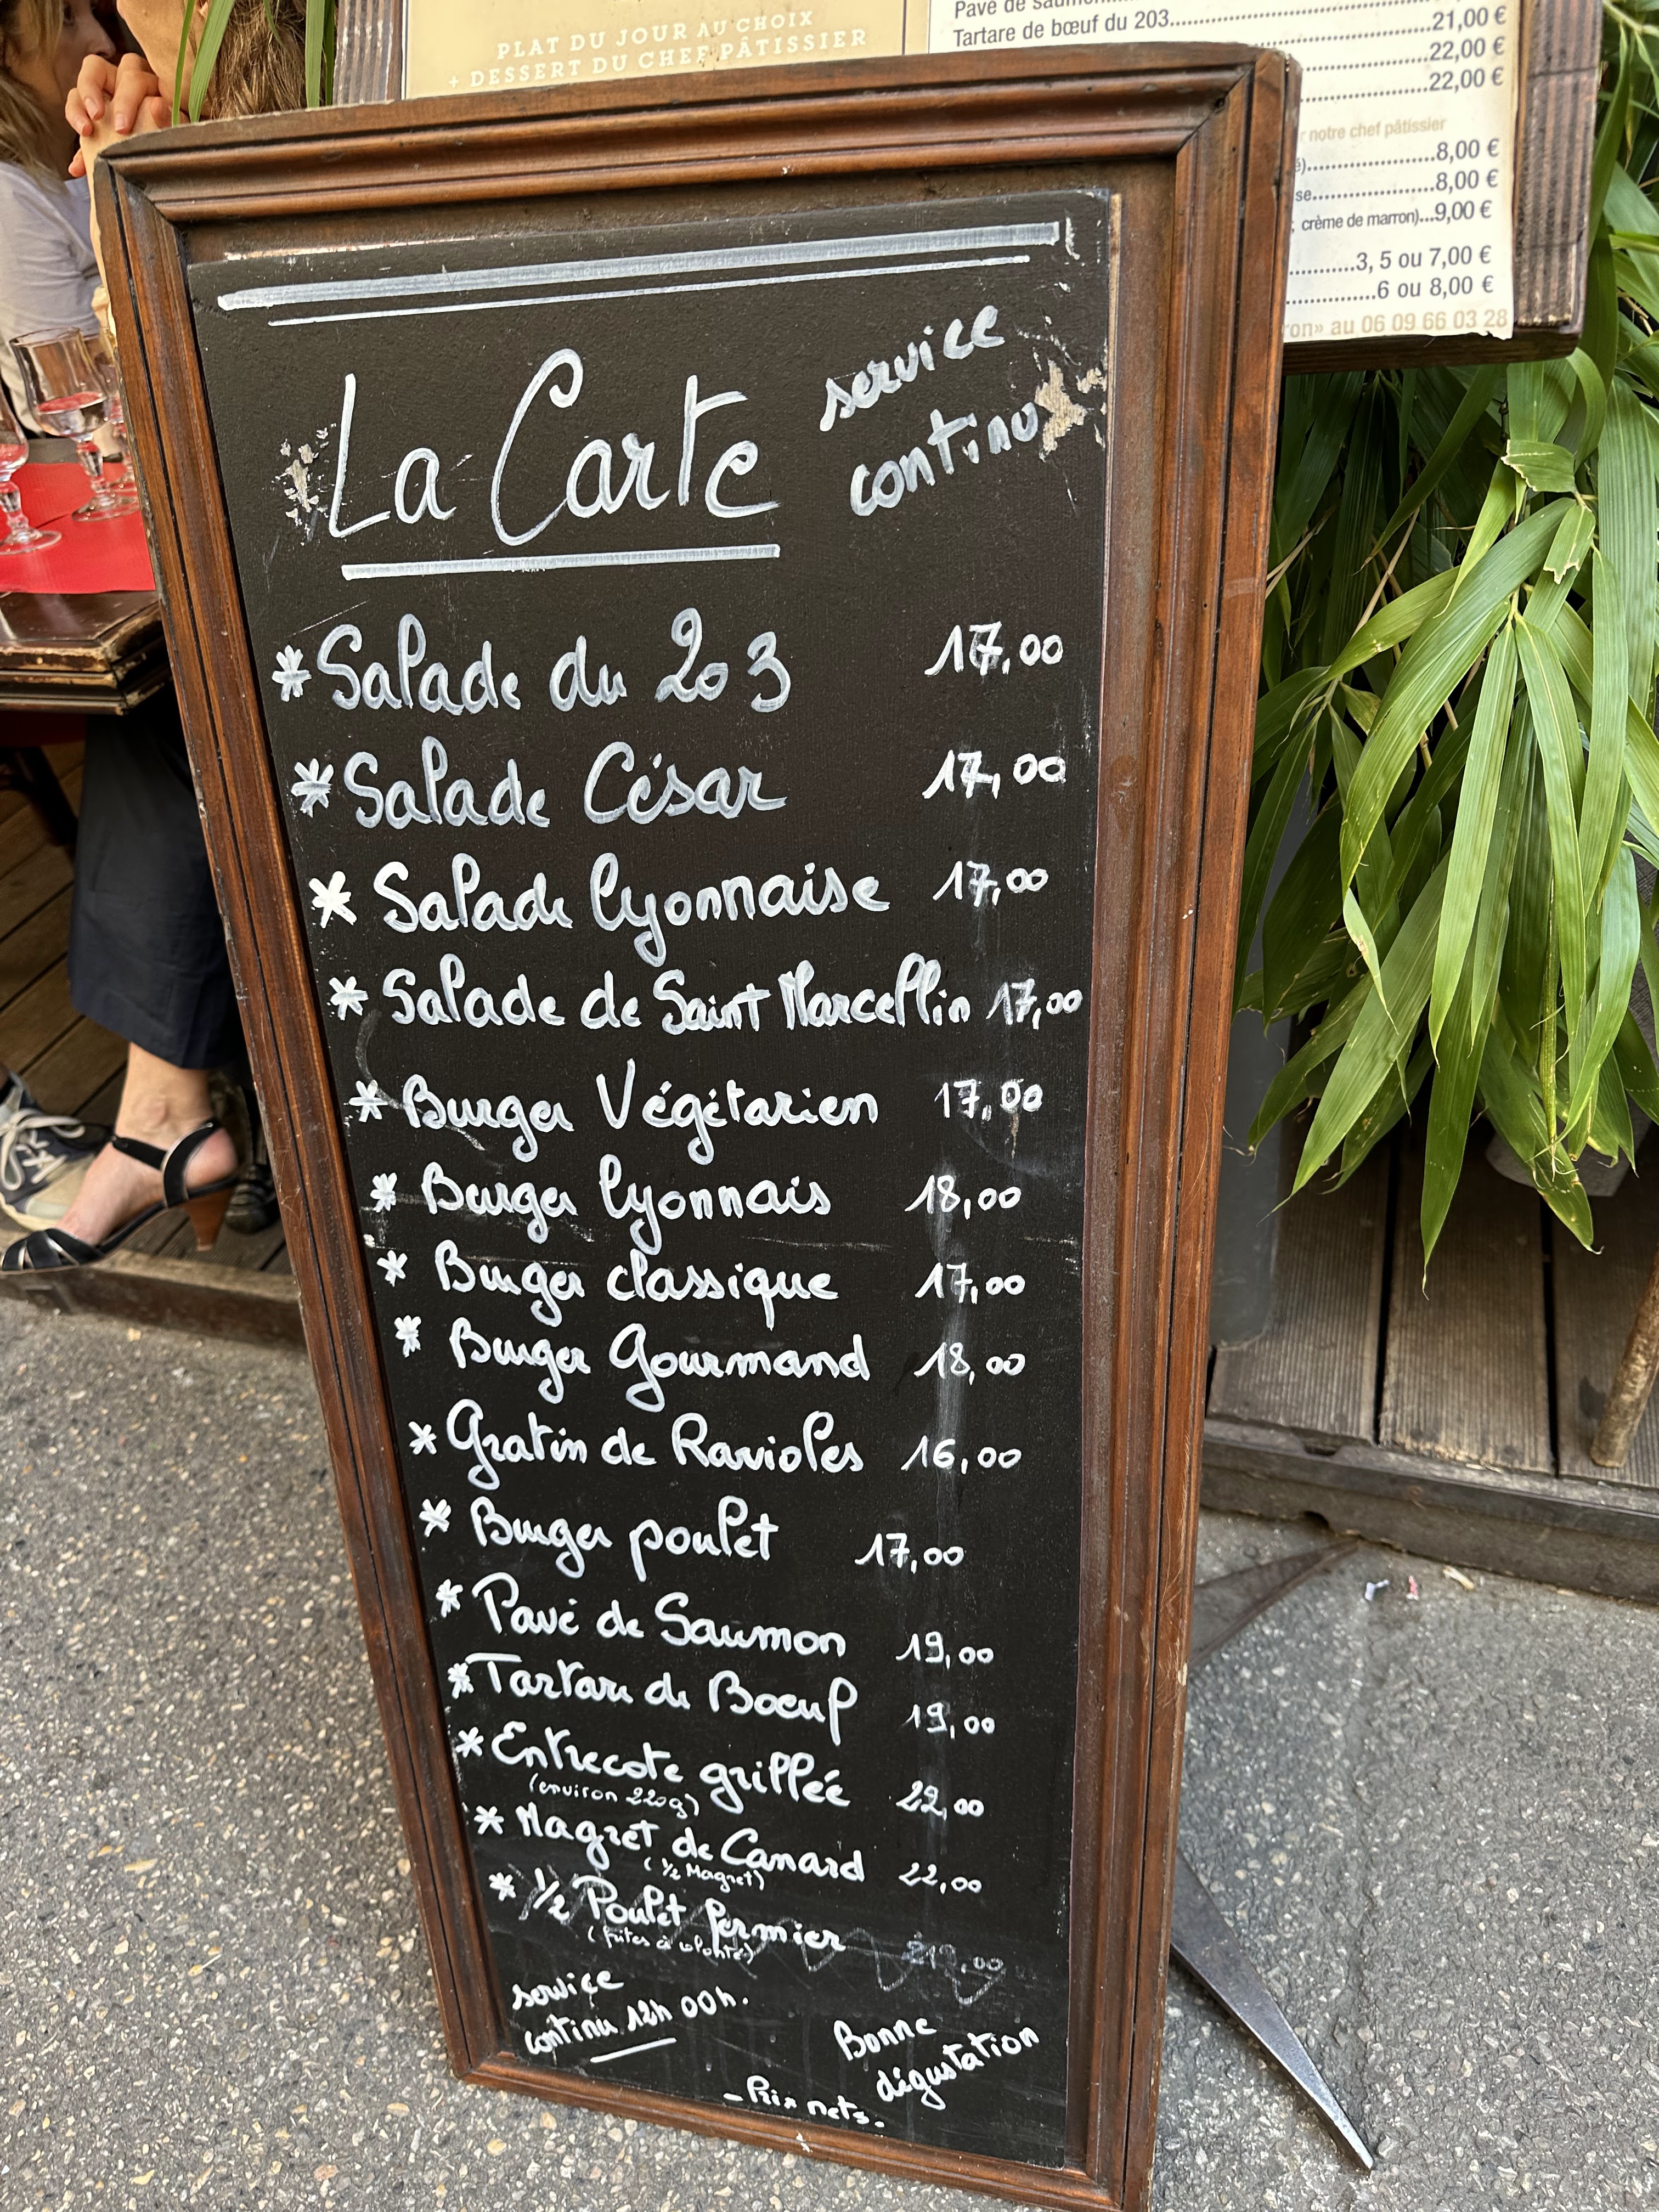 PLAT DU JOUR AU CHOIX
+ DESSERT DU CHEF PÂTISSIER
Pavé de saumon
Tartare de bœuf du 203..........21,00 €
..........22,00 €
..........22,00 €
notre chef pâtissier
..........8,00 €
..........8,00 €
crème de marron)...9,00 €
..........3, 5 ou 7,00 €
..........6 ou 8,00 €
au 06 09 66 03 28
La Carte
service
continu
*Salade du 203 17,00
*Salade César 17,00
* Salade lyonnaise 17,00
* Salade de Saint Marcellin 17,00
* Burger Végétarien 17,00
* Burger lyonnais 18,00
* Burger classique 17,00
* Burger Gourmand 18,00
* Gratin de Ravioles 16,00
* Burger poulet 17,00
* Pavé de Saumon 19,00
* Tartare de Boeuf 19,00
* Entrecote grillée 22,00
(environ 220g)
* Magret de Canard 22,00
(1/2 Magret)
* 1/2 Poulet fermier
(frites à volonté)
service
continu 12h 00h.
Bonne
dégustation
- Prix nets.